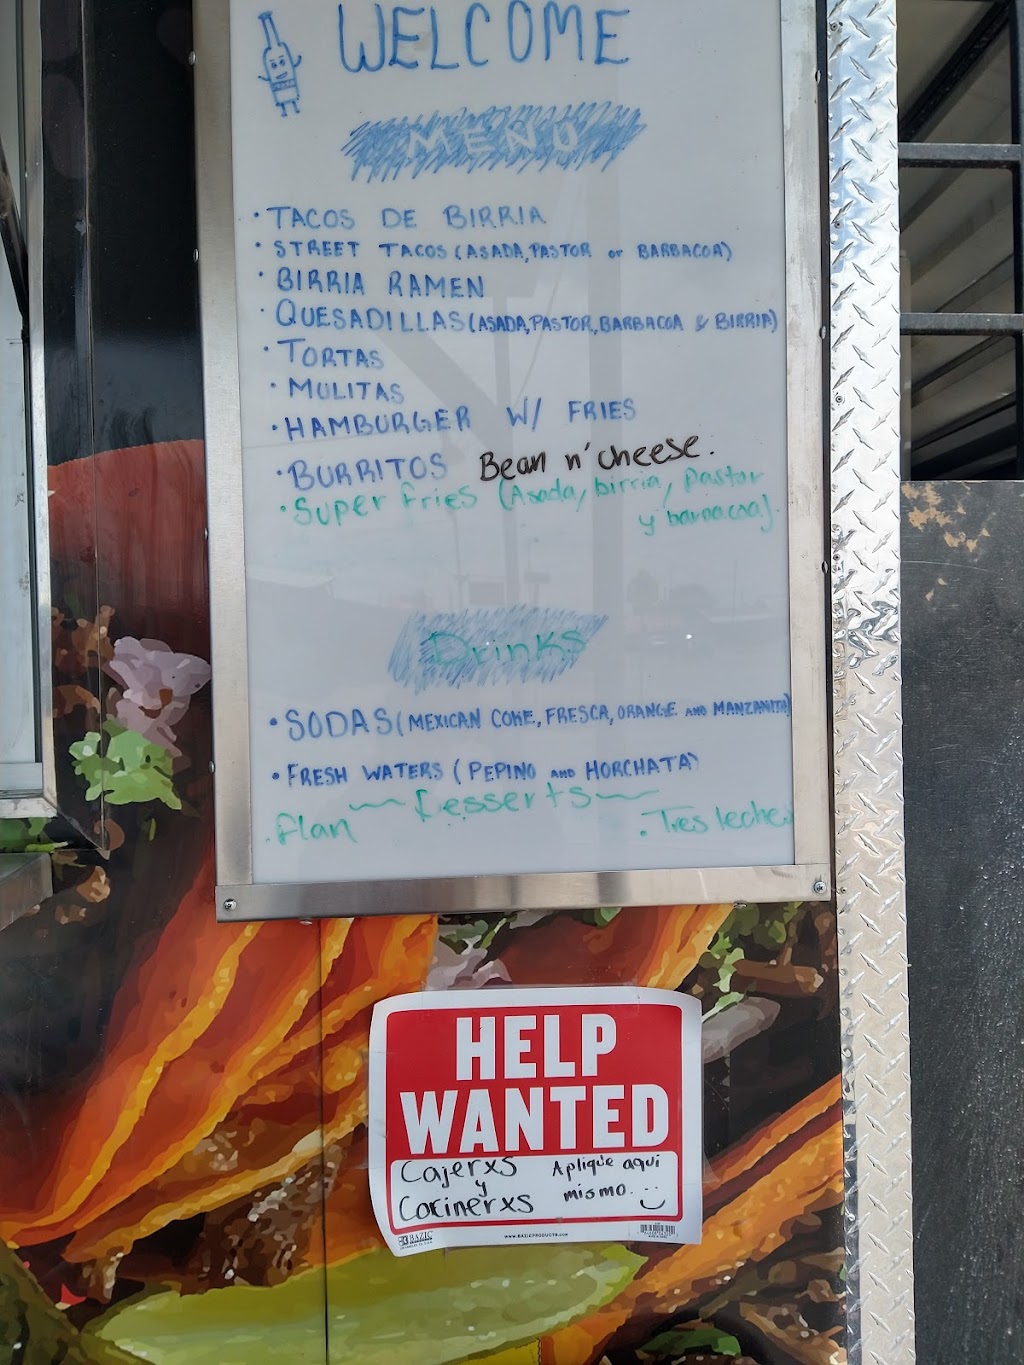 WELCOME
MENU
• TACOS DE BIRRIA
• STREET TACOS (ASADA, PASTOR or BARBACOA)
• BIRRIA RAMEN
• QUESADILLAS (ASADA, PASTOR, BARBACOA & BIRRIA)
• TORTAS
• MULITAS
• HAMBURGER W/ FRIES
• BURRITOS Bean n' cheese.
• Super fries (Asada, birria, pastor
y barbacoa).
Drinks
• SODAS (MEXICAN COKE, FRESCA, ORANGE AND MANZANITA)
• FRESH WATERS (PEPINO AND HORCHATA)
~ Desserts ~
• flan
• Tres leches
HELP
WANTED
Cajerxs
y
Cocinerxs
Aplique aquí
mismo. :)
BAZIC
WWW.BAZICPRODUCTS.COM